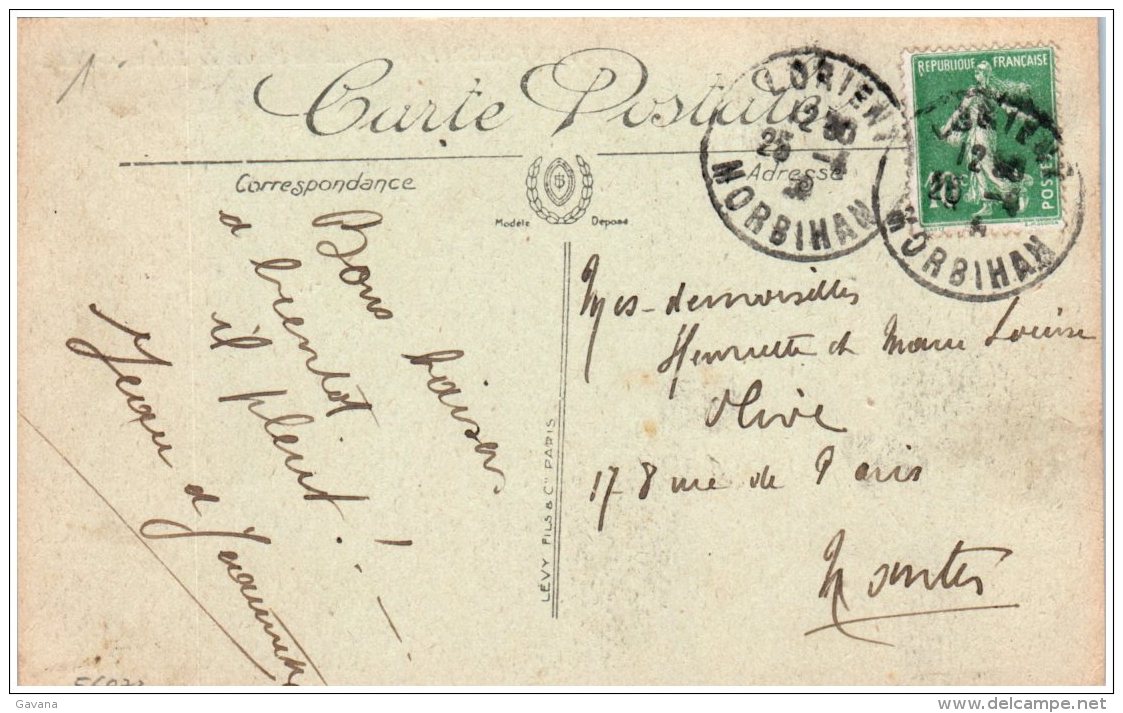 Carte Postale
Correspondance
Adresse
Modèle Déposé
LORIENT
12 30
25 -4
MORBIHAN
RÉPUBLIQUE FRANÇAISE
POSTES
12
MORBIHAN
Bons baisers
à bientôt
il pleut! —
et Jeannette
LÉVY FILS & Cie PARIS
Mes-demoiselles
Henriette et Marie Louise
Olive
178 rue de Paris
Nantes
Gavana
delcampe.net